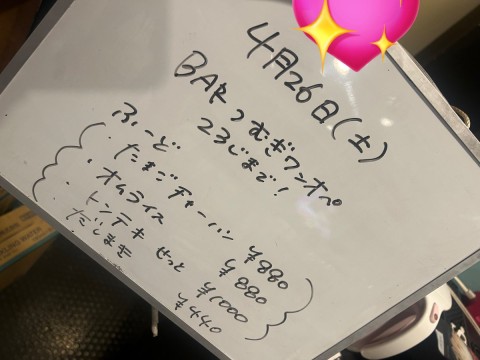 4月26日(土)
BARつむぎワンオペ
23じまで!
ふーど
・たまごチャーハン ¥880
・オムライス ¥880
・トンテキ せっと ¥1000
・だしまき ¥440